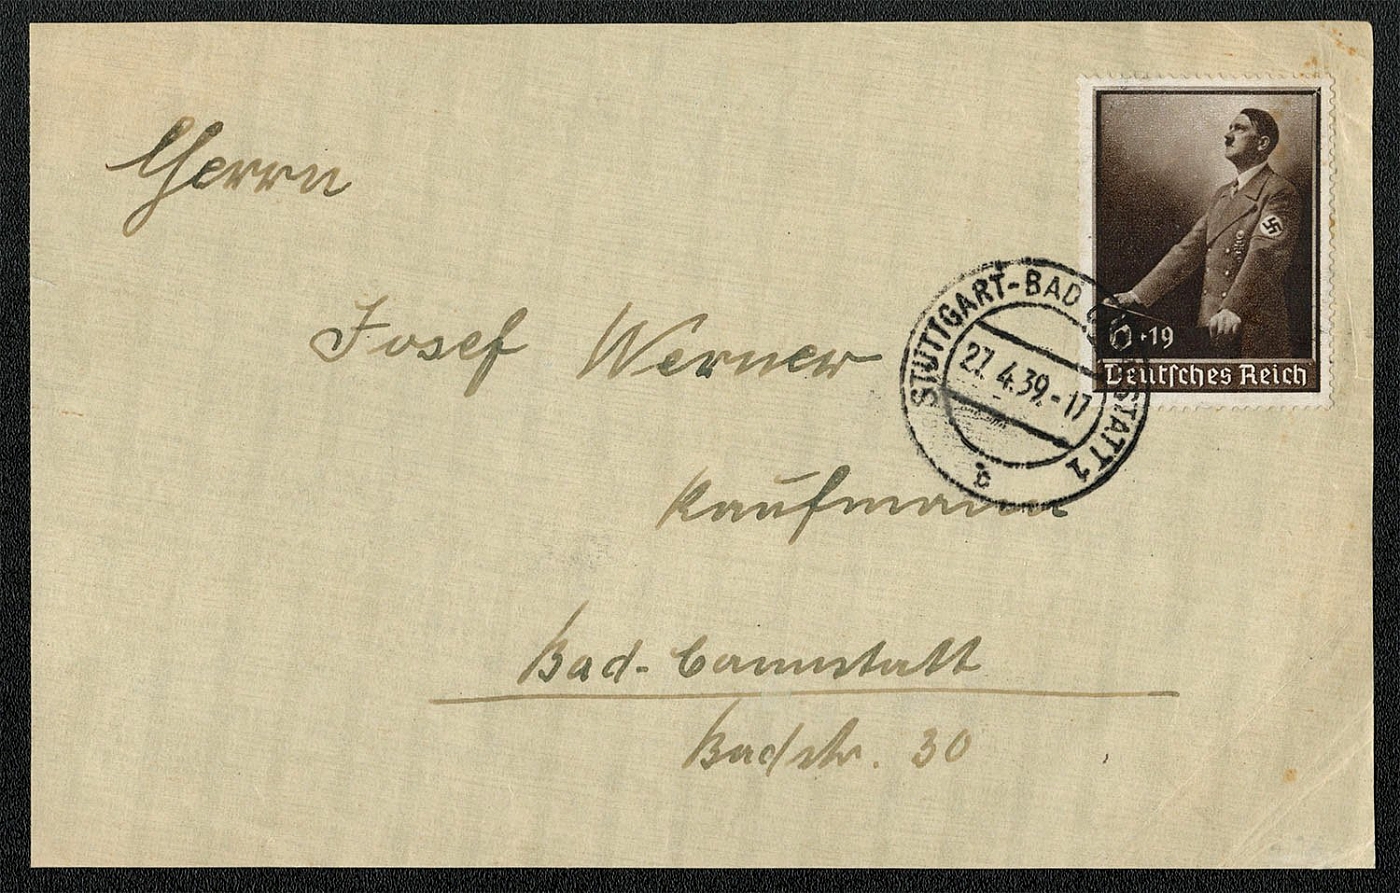 Herrn
Josef Werner
Kaufmann
Bad-Cannstatt
Badstr. 30
STUTTGART-BAD CANNSTATT 1
27.4.39.-17
a
6+19
Deutsches Reich